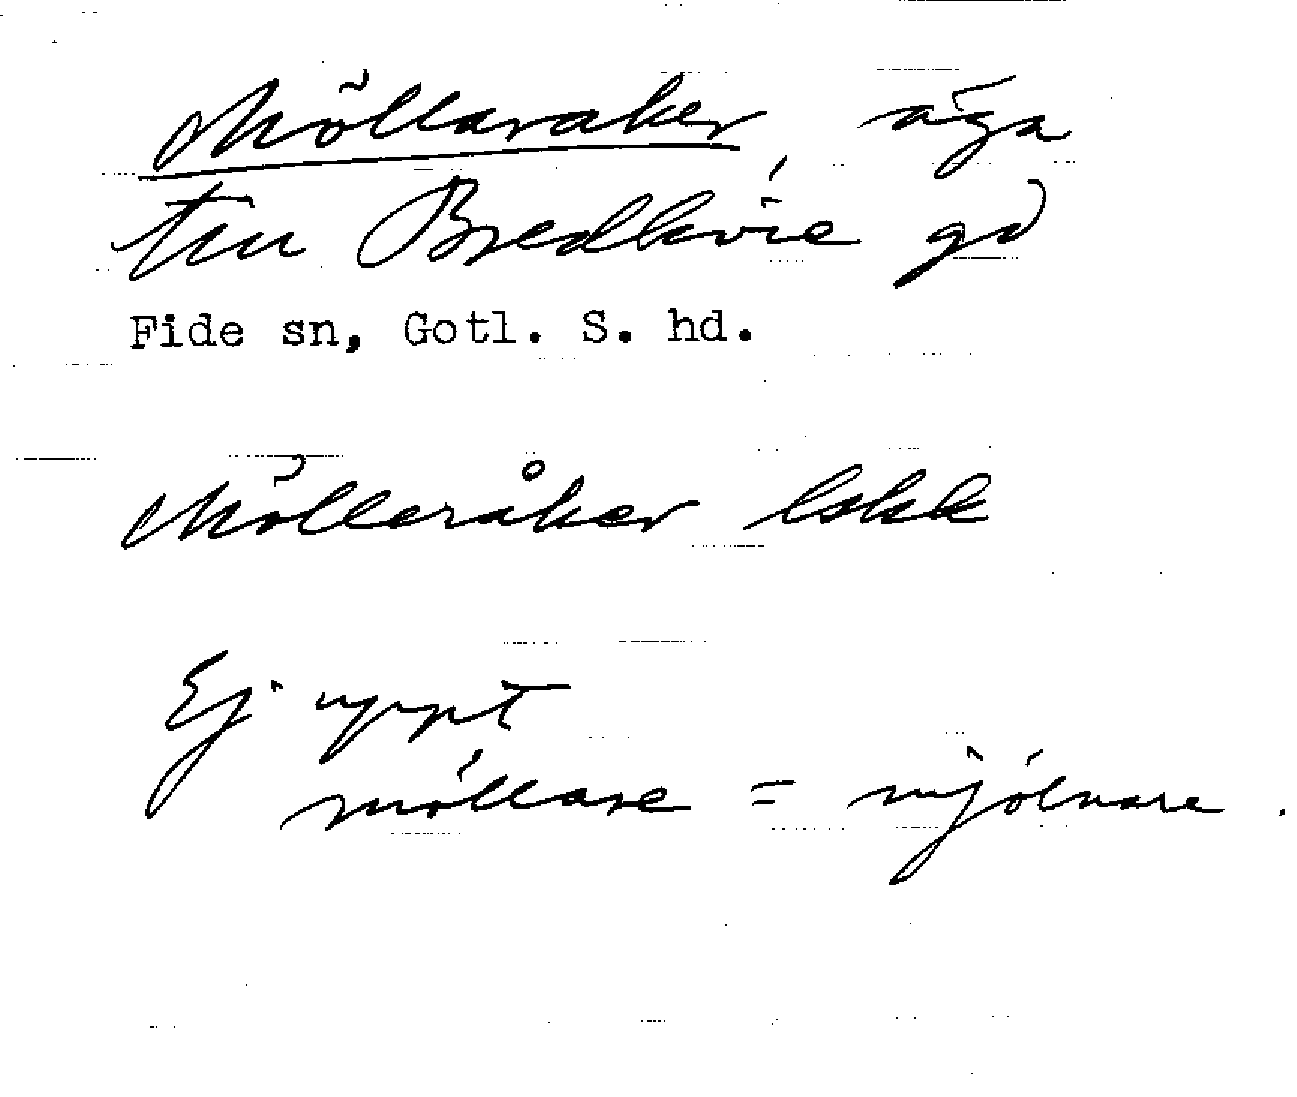 Möllaraker, äga
till Bredkvie gd
Fide sn, Gotl. S. hd.
Mölleråker lokk
Ej uppt
möllare = mjölnare.